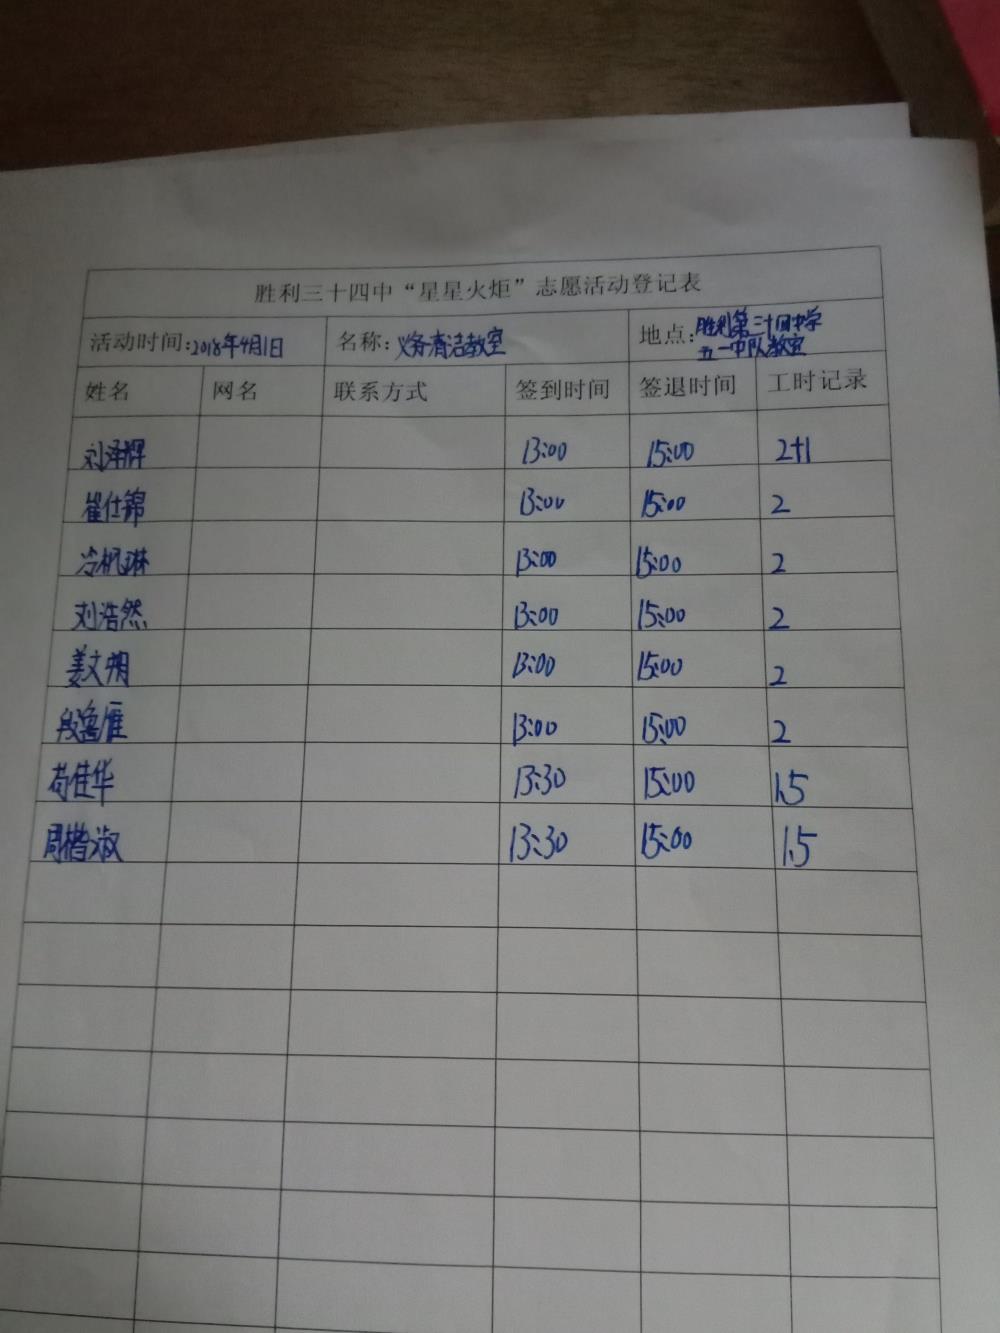 胜利三十四中“星星火炬”志愿活动登记表
活动时间:2018年4月1日 名称:义务清洁教室 地点:胜利第三十四中学
五一中队教室
姓名 网名 联系方式 签到时间 签退时间 工时记录
刘泽辉 13:00 15:00 2+1
崔仕锦 13:00 15:00 2
冷枫琳 13:00 15:00 2
刘浩然 13:00 15:00 2
姜文朔 13:00 15:00 2
段逸 13:00 15:00 2
苟佳华 13:30 15:00 1.5
周楷淑 13:30 15:00 1.5